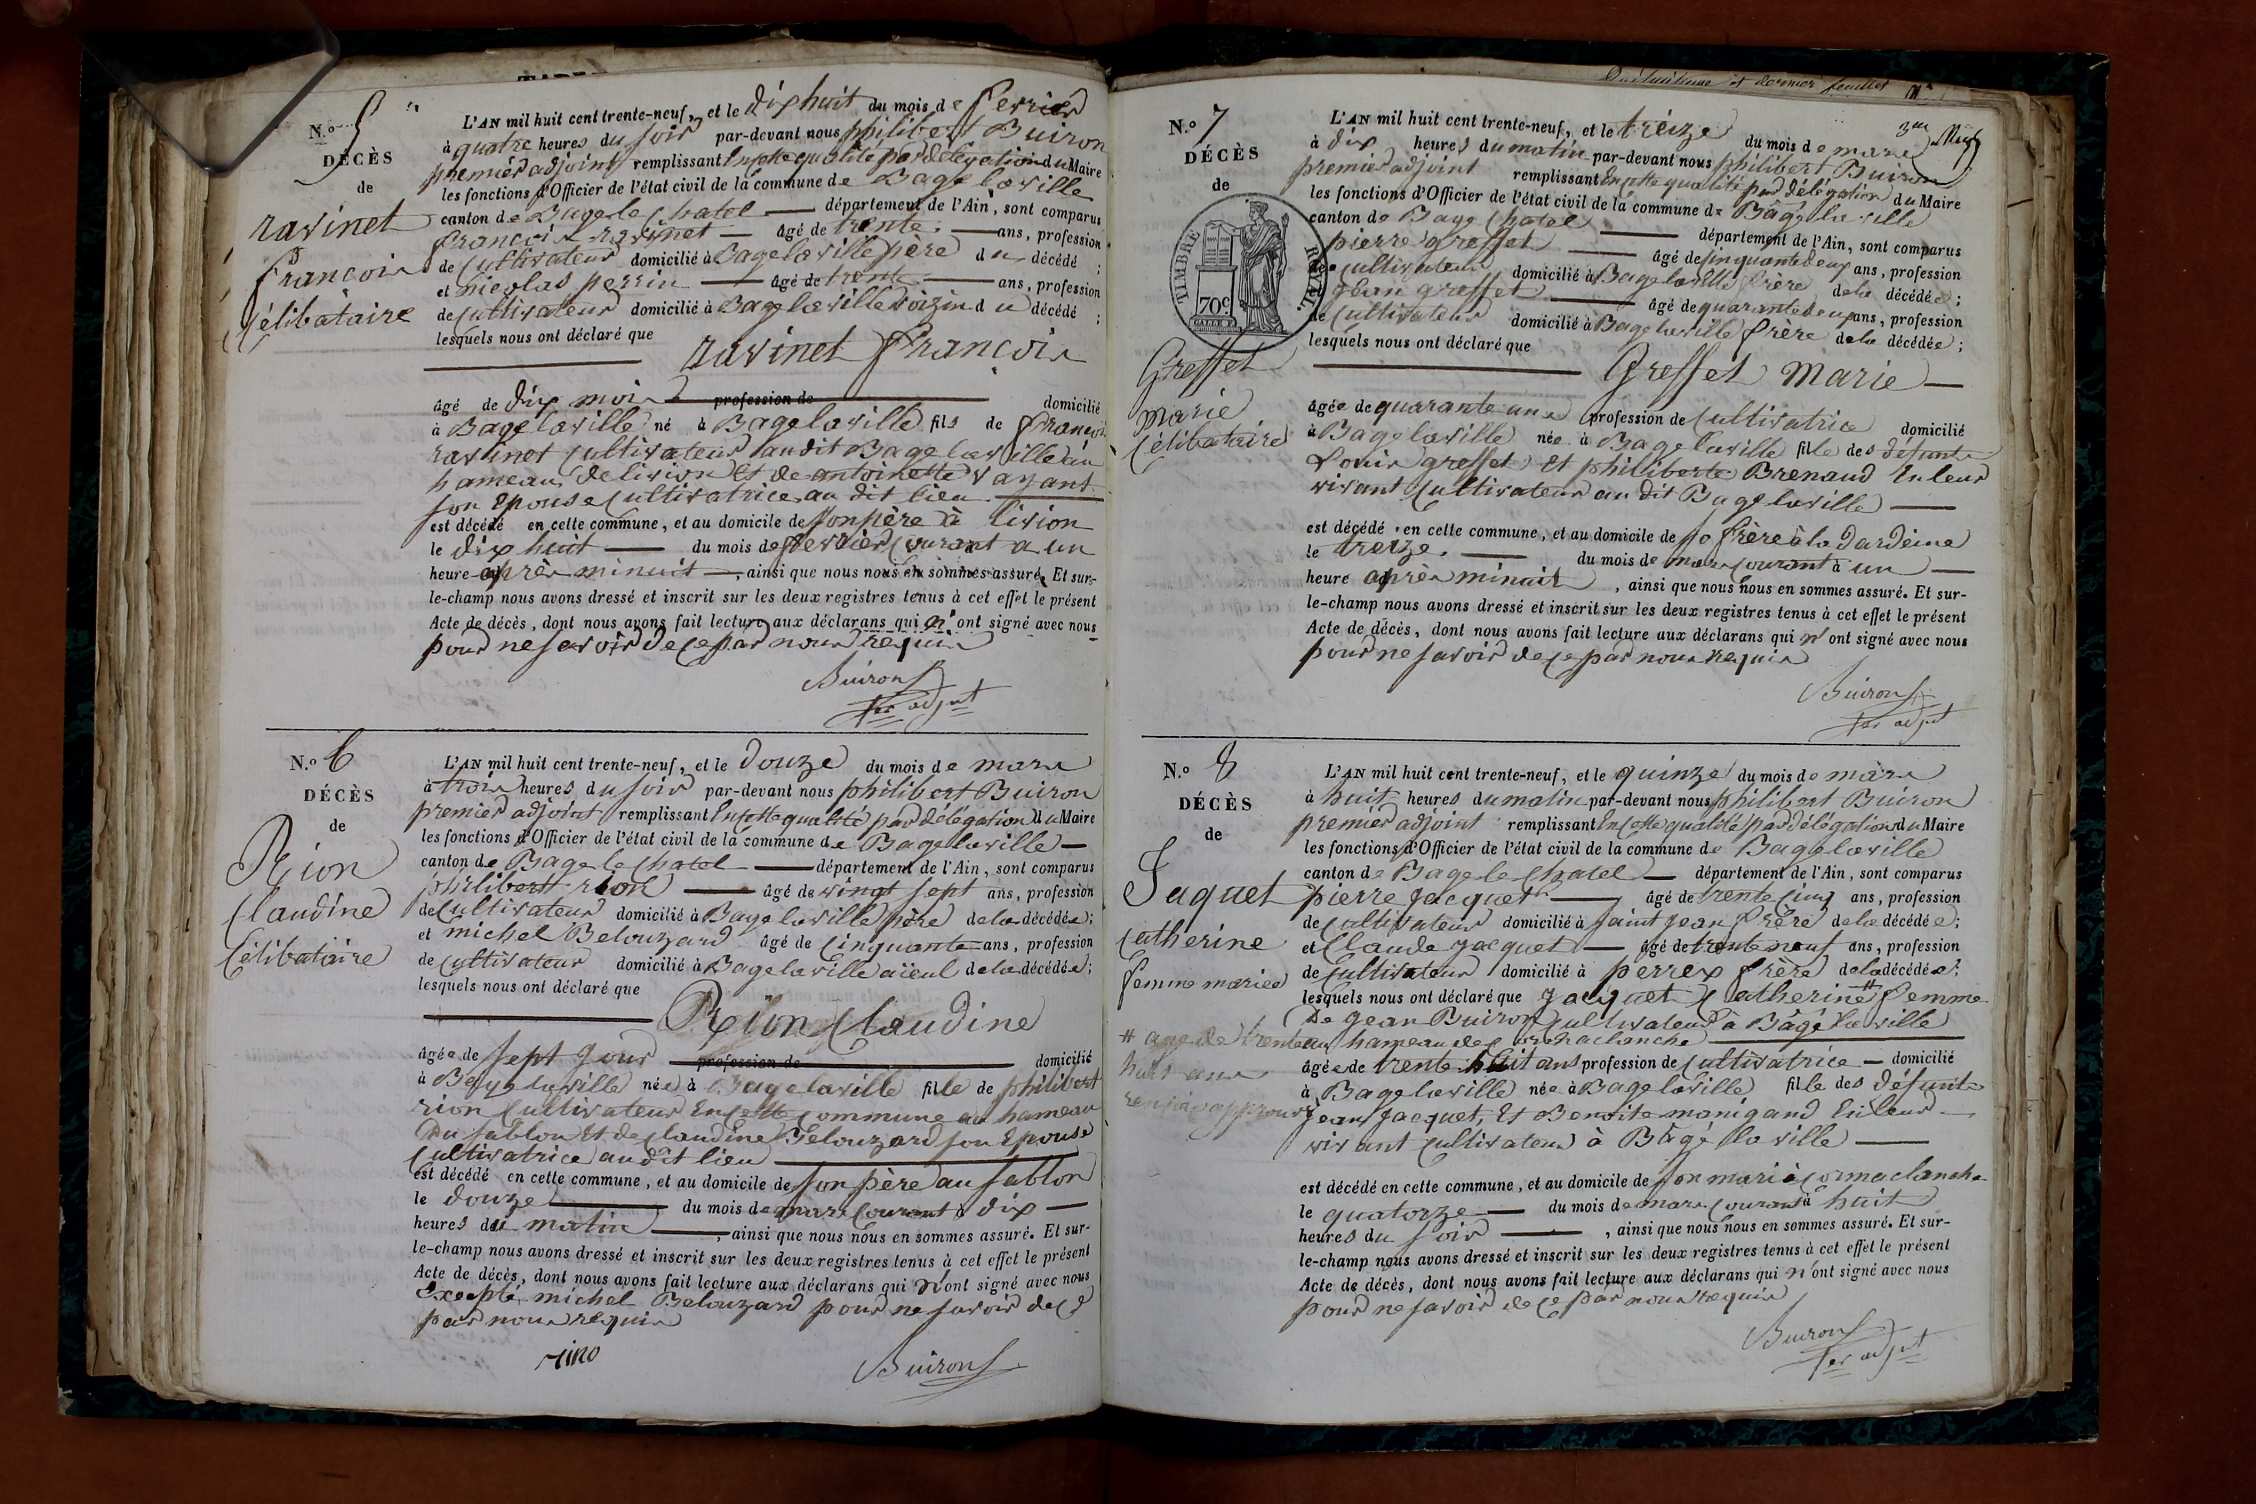 N.o 5
DÉCÈS
de
ravinet
francois
Célibataire
L'AN mil huit cent trente-neuf, et le dix huit du mois de fevrier
à quatre heures du soir par-devant nous philibert Buiron
premier adjoint remplissant En cette qualité par délégation du Maire
les fonctions d'Officier de l'état civil de la commune de Bage laville
canton de Bage le Chatel département de l'Ain, sont comparus
francois ravinet âgé de trente ans, profession
de Cultivateur domicilié à Bage laville père du décédé ;
et nicolas perrin âgé de trente ans, profession
de Cultivateur domicilié à Bage laville voizin du décédé ;
lesquels nous ont déclaré que
ravinet francois
âgé de dix mois profession de domicilié
à Bage laville né à Bage laville fils de francois
ravinet Cultivateur audit Bage laville au
hameau de livion Et de antoinette vayant
son Epouse Cultivatrice au dit lieu
est décédé en cette commune, et au domicile de son père à livion
le dix huit du mois de fevrier courant a un
heure après minuit, ainsi que nous nous en sommes assuré. Et sur-
le-champ nous avons dressé et inscrit sur les deux registres tenus à cet effet le présent
Acte de décès, dont nous avons fait lecture aux déclarans qui n'ont signé avec nous
pour ne savoir de ce par nous requis
Buiron
1er adjt
N.o 6
DÉCÈS
de
Rion
Claudine
Célibataire
L'AN mil huit cent trente-neuf, et le douze du mois de mars
à trois heures du soir par-devant nous philibert Buiron
premier adjoint remplissant En cette qualité par délégation du Maire
les fonctions d'Officier de l'état civil de la commune de Bage laville
canton de Bage le Chatel département de l'Ain, sont comparus
philibert rion âgé de vingt sept ans, profession
de Cultivateur domicilié à Bage laville père de la décédée ;
et michel Belouzard âgé de Cinquante ans, profession
de Cultivateur domicilié à Bage laville aïeul de la décédée ;
lesquels nous ont déclaré que
Rion Claudine
âgée de sept jours profession de domicilié
à Bage laville née à Bage laville fille de philibert
rion Cultivateur En cette Commune au hameau
Du sablon Et de Claudine Belouzard son Epouse
Cultivatrice au dit lieu
est décédé en cette commune, et au domicile de son père au sablon
le douze du mois de mars Courant à dix
heures du matin, ainsi que nous nous en sommes assuré. Et sur-
le-champ nous avons dressé et inscrit sur les deux registres tenus à cet effet le présent
Acte de décès, dont nous avons fait lecture aux déclarans qui n'ont signé avec nous
Excepté michel Belouzard pour ne savoir de ce
par nous requis
Buiron
et dernier feuillet
N.o 7
DÉCÈS
de
TIMBRE ROYAL
70c
Greffet
Marie
Célibataire
L'AN mil huit cent trente-neuf, et le treize du mois de mars
à dix heures du matin par-devant nous philibert Buiron
premier adjoint remplissant En cette qualité par délégation du Maire
les fonctions d'Officier de l'état civil de la commune de Bâgé la ville
canton de Bage Chatel département de l'Ain, sont comparus
pierre greffet âgé de sinquante deux ans, profession
de Cultivateur domicilié à Bage laville frère de la décédée ;
et jean greffet âgé de quarante deux ans, profession
de Cultivateur domicilié à Bage laville frère de la décédée ;
lesquels nous ont déclaré que
Greffet Marie
âgée de quarante un profession de Cultivatrice domicilié
à Bage laville née à Bage laville fille des défunts
Louis greffet Et philiberte Brenaud En leur
vivant Cultivateur au dit Bage laville
est décédé en cette commune, et au domicile de so frère à la dardeine
le treize du mois de mars Courant à un
heure après minuit, ainsi que nous nous en sommes assuré. Et sur-
le-champ nous avons dressé et inscrit sur les deux registres tenus à cet effet le présent
Acte de décès, dont nous avons fait lecture aux déclarans qui n'ont signé avec nous
pour ne savoir de ce par nous requis
Buiron
1er adjt
N.o 8
DÉCÈS
de
Jaquet
Catherine
femme mariée
# agé de trente
huit ans
renvoi approuvé
L'AN mil huit cent trente-neuf, et le quinze du mois de mars
à huit heures du matin par-devant nous philibert Buiron
premier adjoint remplissant En cette qualité par délégation du Maire
les fonctions d'Officier de l'état civil de la commune de Bage laville
canton de Bage le Chatel département de l'Ain, sont comparus
pierre Jacquet âgé de trente Cinq ans, profession
de Cultivateur domicilié à saint jean frère de la décédée ;
et Claude Jacquet âgé de trente neuf ans, profession
de Cultivateur domicilié à perrex frère de la décédée ;
lesquels nous ont déclaré que Jacquet Catherine # femme
De jean Buiron Cultivateur à Bâgé la ville
au hameau de Cormaclanche
âgée de trente huit ans profession de Cultivatrice domicilié
à Bage laville née à Bage laville fille des défunts
Jean Jacquet, Et Benoite manigand En leur
vivant Cultivateur à Bâgé la ville
est décédé en cette commune, et au domicile de son mari à Cormaclanche
le quatorze du mois de mars Courant à huit
heures du soir, ainsi que nous nous en sommes assuré. Et sur-
le-champ nous avons dressé et inscrit sur les deux registres tenus à cet effet le présent
Acte de décès, dont nous avons fait lecture aux déclarans qui n'ont signé avec nous
pour ne savoir de ce par nous requis
Buiron
1er adjt